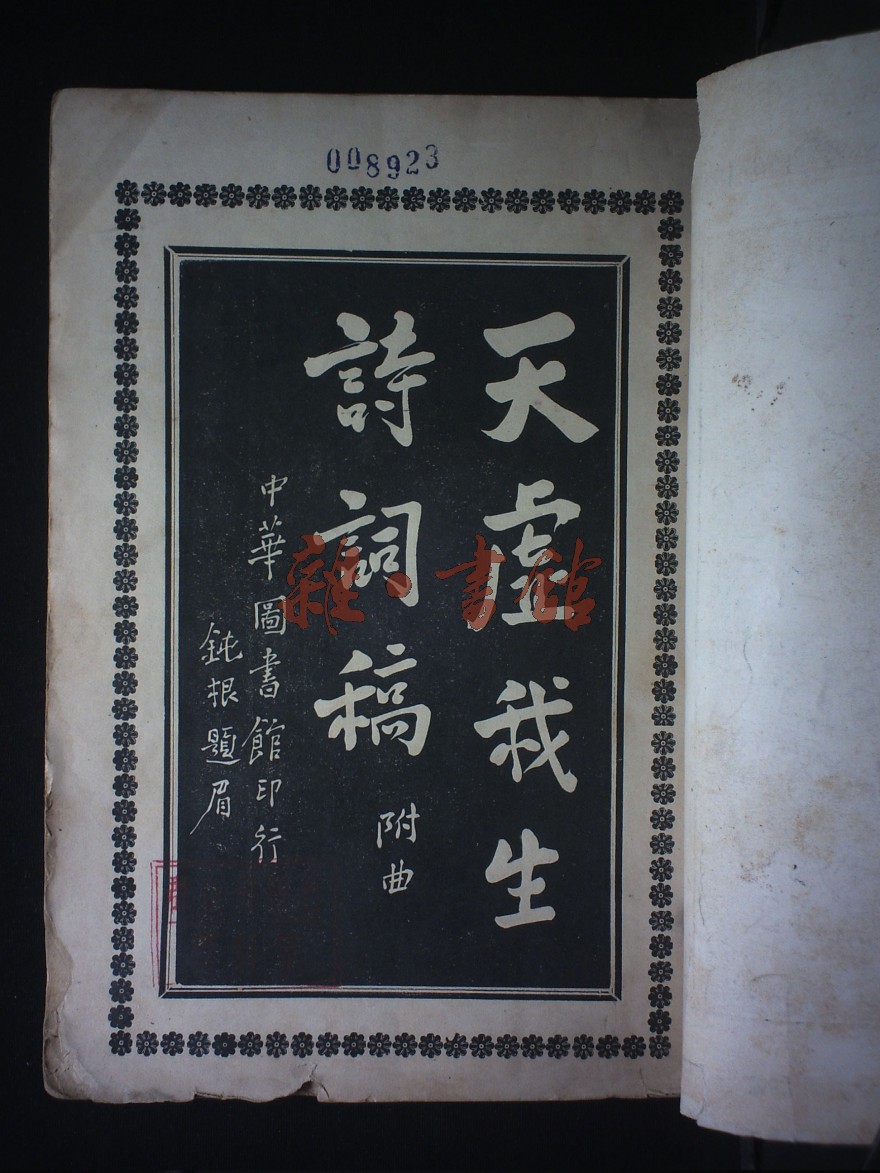 008923
天虛我生
詩詞稿 附曲
中華圖書館印行
鈍根題眉
雜·書館